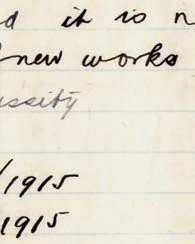 d it is n
new works
ssity
/1915
1915